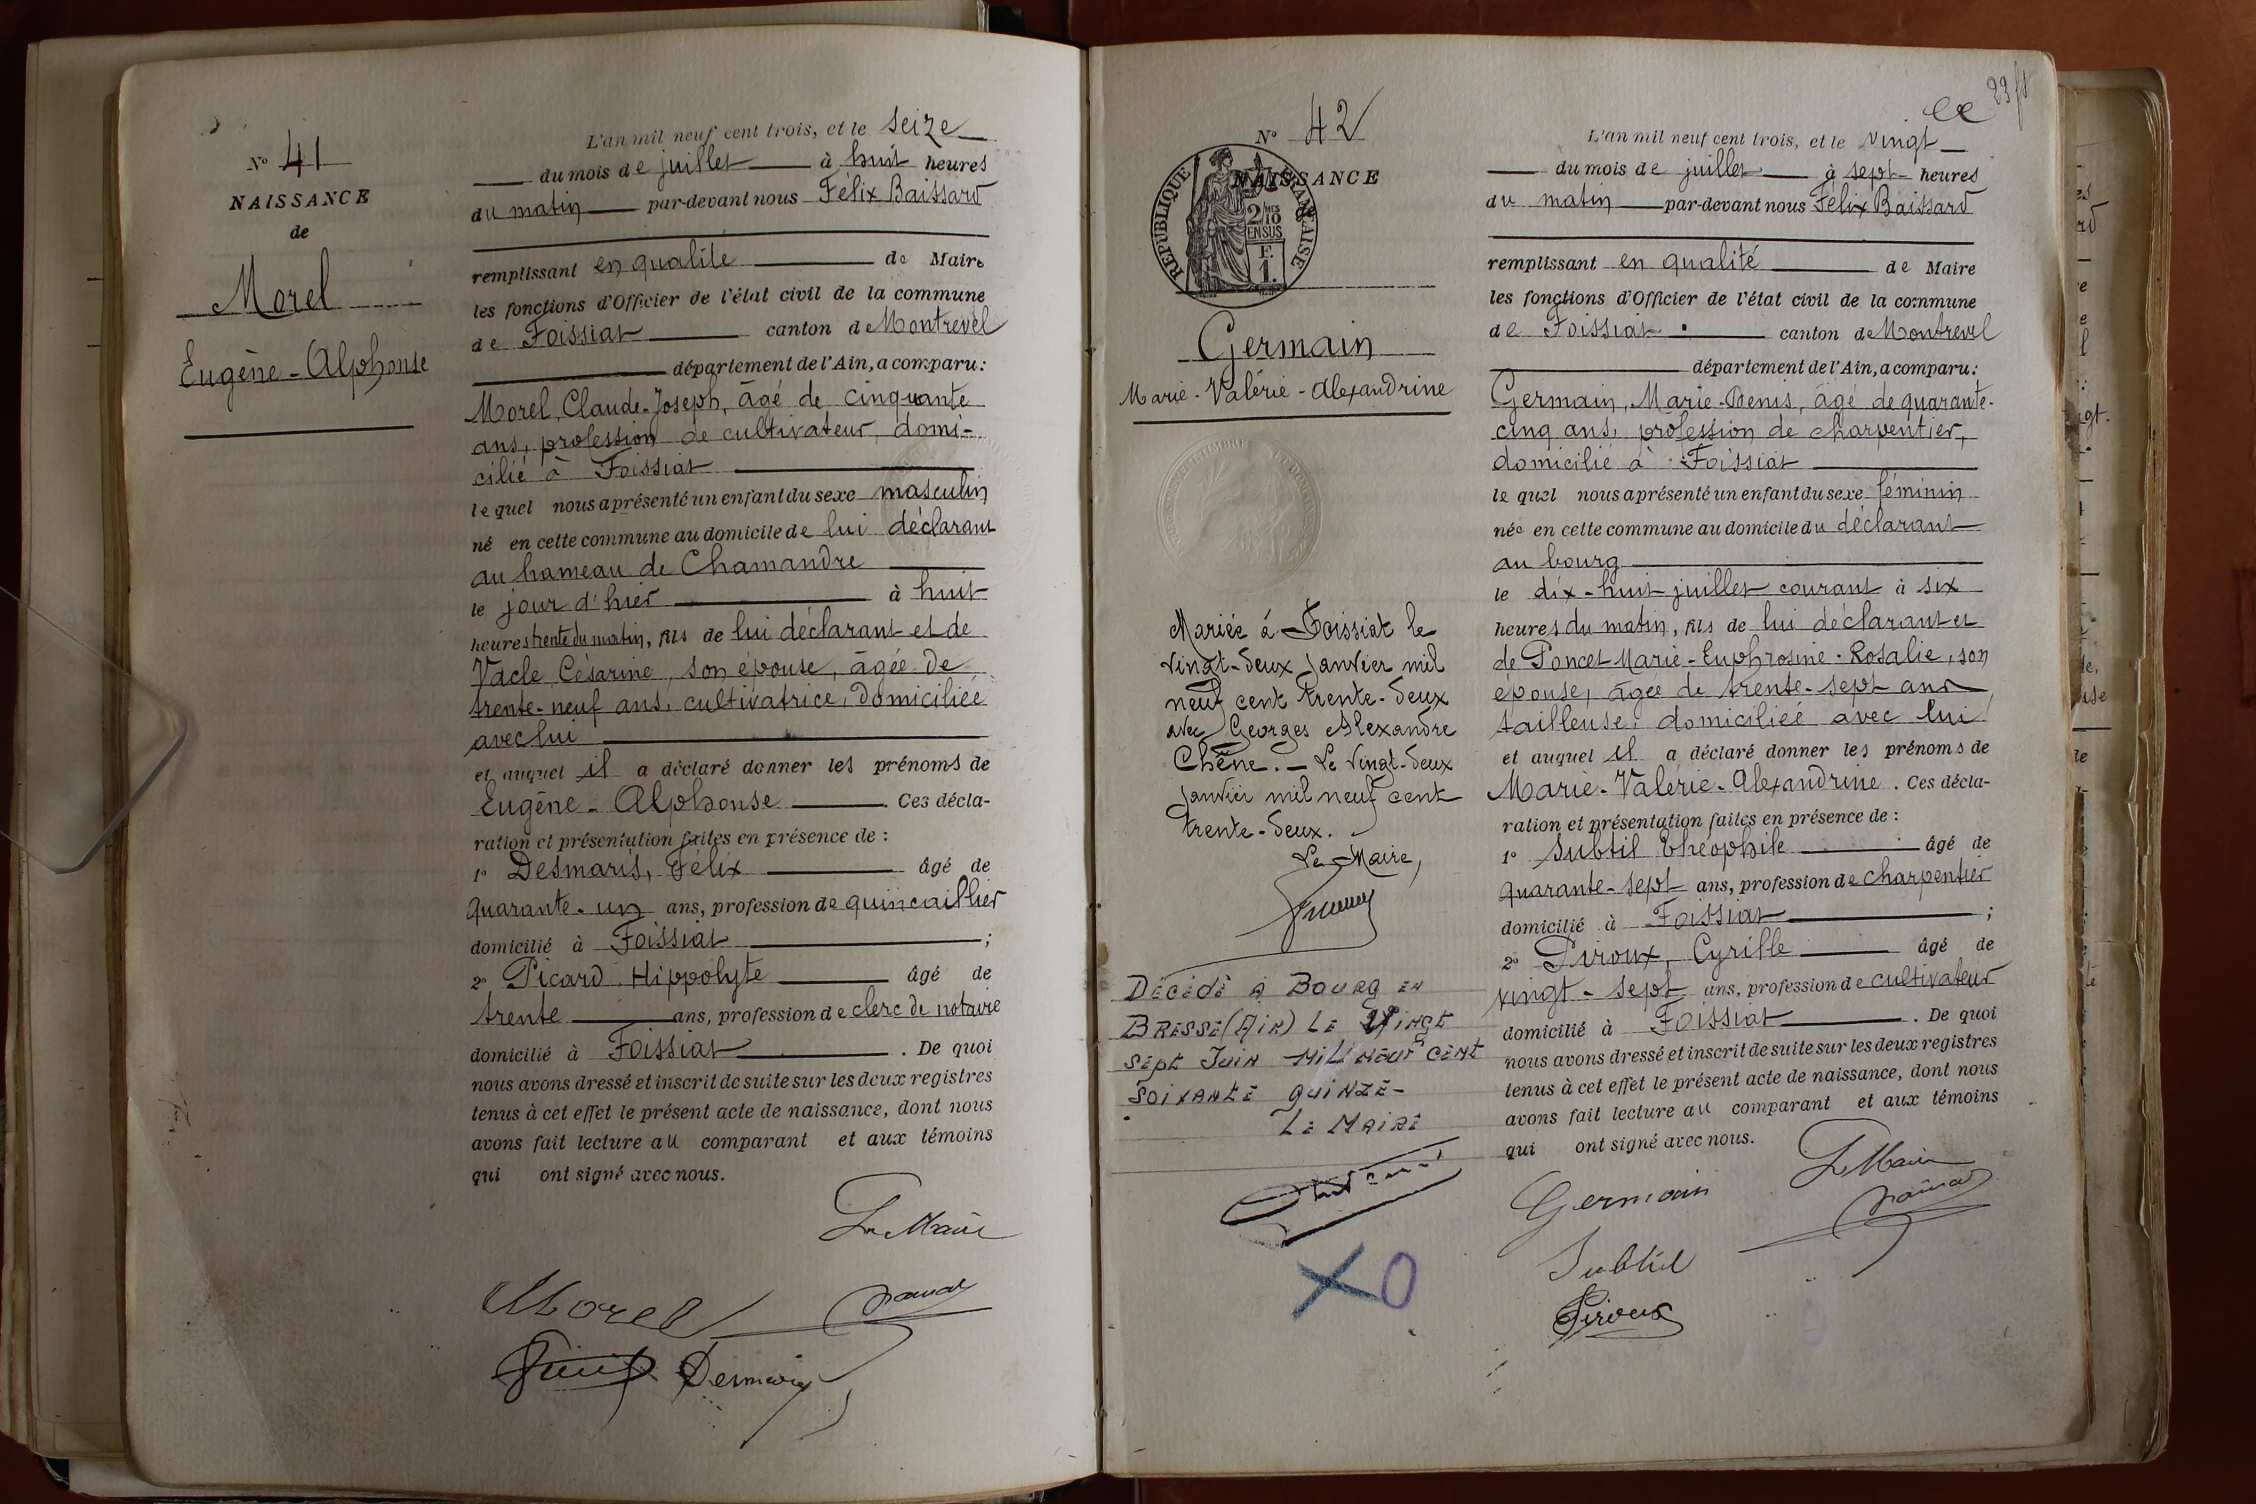 N° 41
NAISSANCE
de
Morel
Eugène-Alphonse
L'an mil neuf cent trois, et le seize
du mois de juillet à huit heures
du matin par-devant nous Félix Baissard
remplissant en qualité de Maire
les fonctions d'Officier de l'état civil de la commune
de Foissiat canton de Montrevel
département de l'Ain, a comparu:
Morel, Claude-Joseph, âgé de cinquante
ans, profession de cultivateur, domi-
cilié à Foissiat
lequel nous a présenté un enfant du sexe masculin
né en cette commune au domicile de lui déclarant
au hameau de Chamandre
le jour d'hier à huit
heures trente du matin, fils de lui déclarant et de
Vacle Césarine, son épouse, âgée de
trente-neuf ans, cultivatrice, domiciliée
avec lui
et auquel il a déclaré donner les prénoms de
Eugène-Alphonse. Ces décla-
ration et présentation faites en présence de :
1° Desmaris, Félix âgé de
quarante-un ans, profession de quincaillier
domicilié à Foissiat ;
2° Picard Hippolyte âgé de
trente ans, profession de clerc de notaire
domicilié à Foissiat. De quoi
nous avons dressé et inscrit de suite sur les deux registres
tenus à cet effet le présent acte de naissance, dont nous
avons fait lecture au comparant et aux témoins
qui ont signé avec nous.
Le Maire
Morel
N° 42
NAISSANCE
RÉPUBLIQUE FRANÇAISE
2/10
EN SUS
F.
1.
Germain
Marie-Valérie-Alexandrine
Mariée à Foissiat le
vingt-deux janvier mil
neuf cent trente-deux
avec Georges Alexandre
Chêne. - Le vingt-deux
janvier mil neuf cent
trente-deux.
Le Maire,
DÉCÉDÉ A BOURG EN
BRESSE (AIN) LE VINGT
SEPT JUIN MIL NEUF CENT
SOIXANTE QUINZE-
LE MAIRE
XO
L'an mil neuf cent trois, et le vingt
du mois de juillet à sept heures
du matin par-devant nous Félix Baissard
remplissant en qualité de Maire
les fonctions d'Officier de l'état civil de la commune
de Foissiat canton de Montrevel
département de l'Ain, a comparu:
Germain, Marie-Denis, âgé de quarante-
cinq ans, profession de charpentier,
domicilié à Foissiat
lequel nous a présenté un enfant du sexe féminin
née en cette commune au domicile du déclarant
au bourg
le dix-huit juillet courant à six
heures du matin, fils de lui déclarant et
de Poncet Marie-Euphrosine-Rosalie, son
épouse, âgée de trente-sept ans,
tailleuse, domiciliée avec lui
et auquel il a déclaré donner les prénoms de
Marie-Valérie-Alexandrine. Ces décla-
ration et présentation faites en présence de :
1° Subtil Théophile âgé de
quarante-sept ans, profession de charpentier
domicilié à Foissiat ;
2° Piroux, Cyrille âgé de
vingt-sept ans, profession de cultivateur
domicilié à Foissiat. De quoi
nous avons dressé et inscrit de suite sur les deux registres
tenus à cet effet le présent acte de naissance, dont nous
avons fait lecture au comparant et aux témoins
qui ont signé avec nous.
Le Maire
Germain
Subtil
Piroux